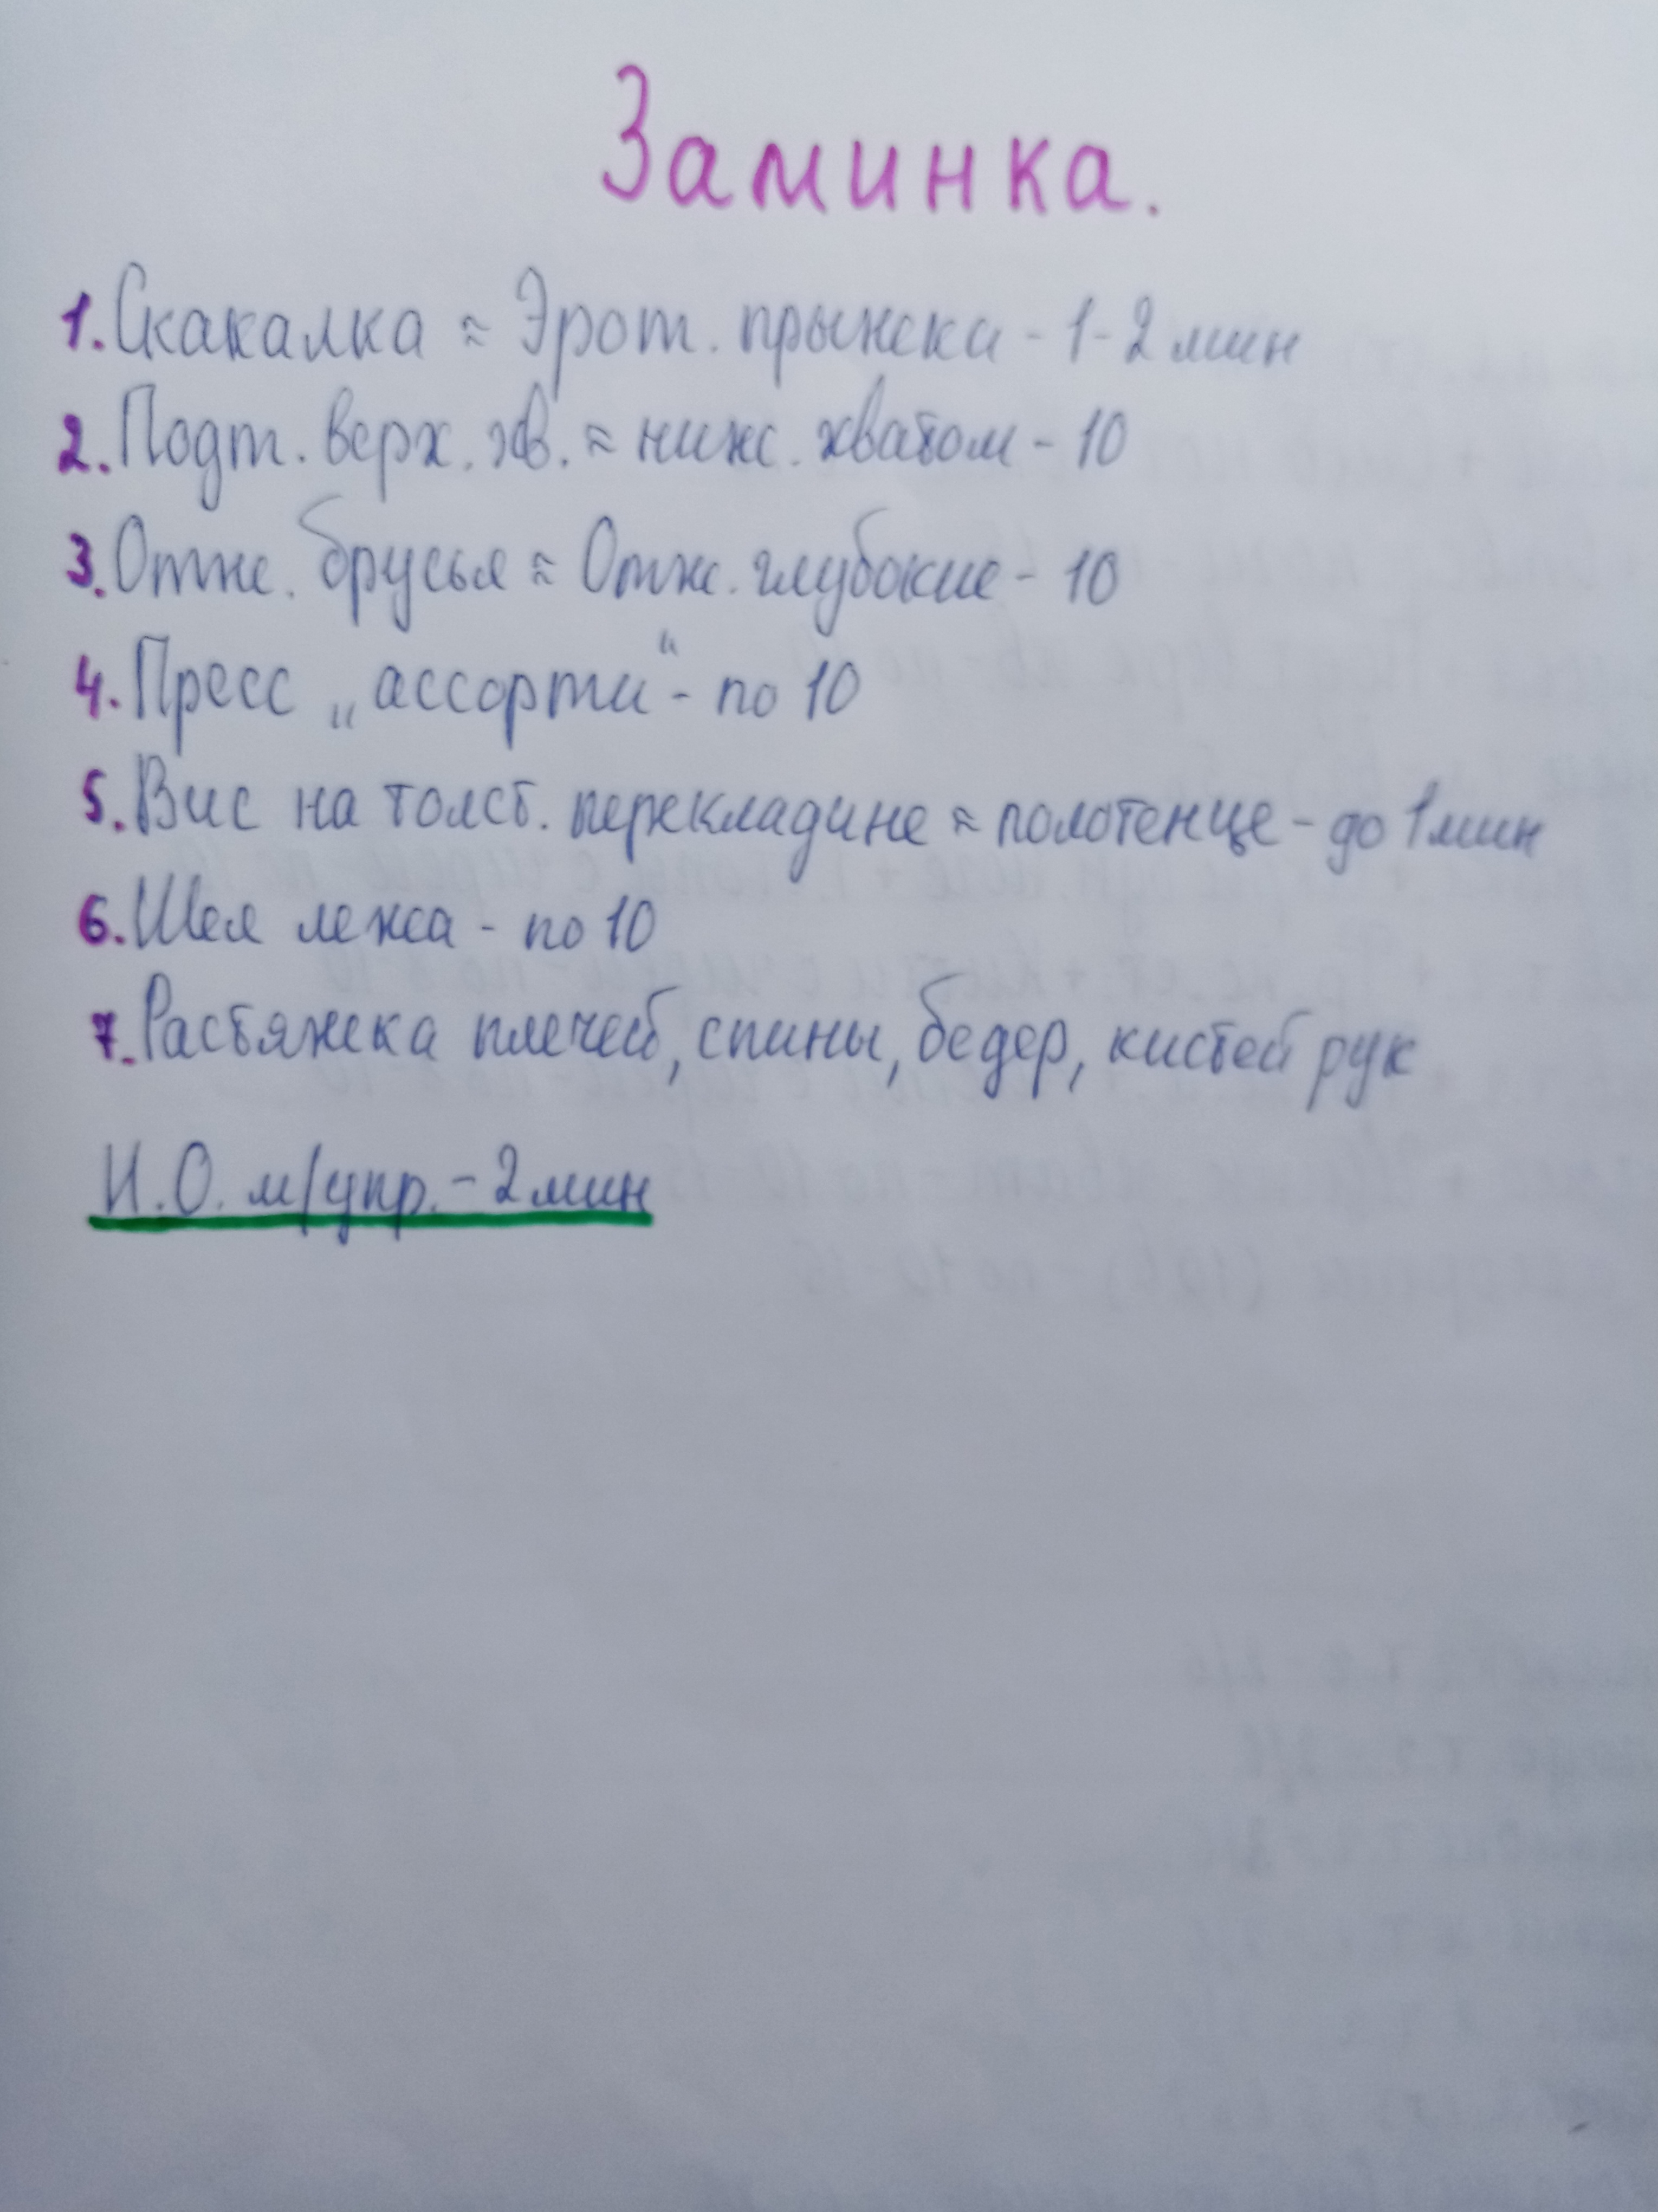 Заминка.
1. Скакалка ≈ Эрот. прыжски - 1-2 мин
2. Подт. верх. хв. ≈ нижс. хватом - 10
3. Отж. брусья ≈ Отж. глубокие - 10
4. Пресс „ассорти“ - по 10
5. Вис на толст. перекладине ≈ полотенце - до 1 мин
6. Шея лежа - по 10
7. Растяжка плечей, спины, бедер, кистей рук
И.О. м/упр. - 2 мин